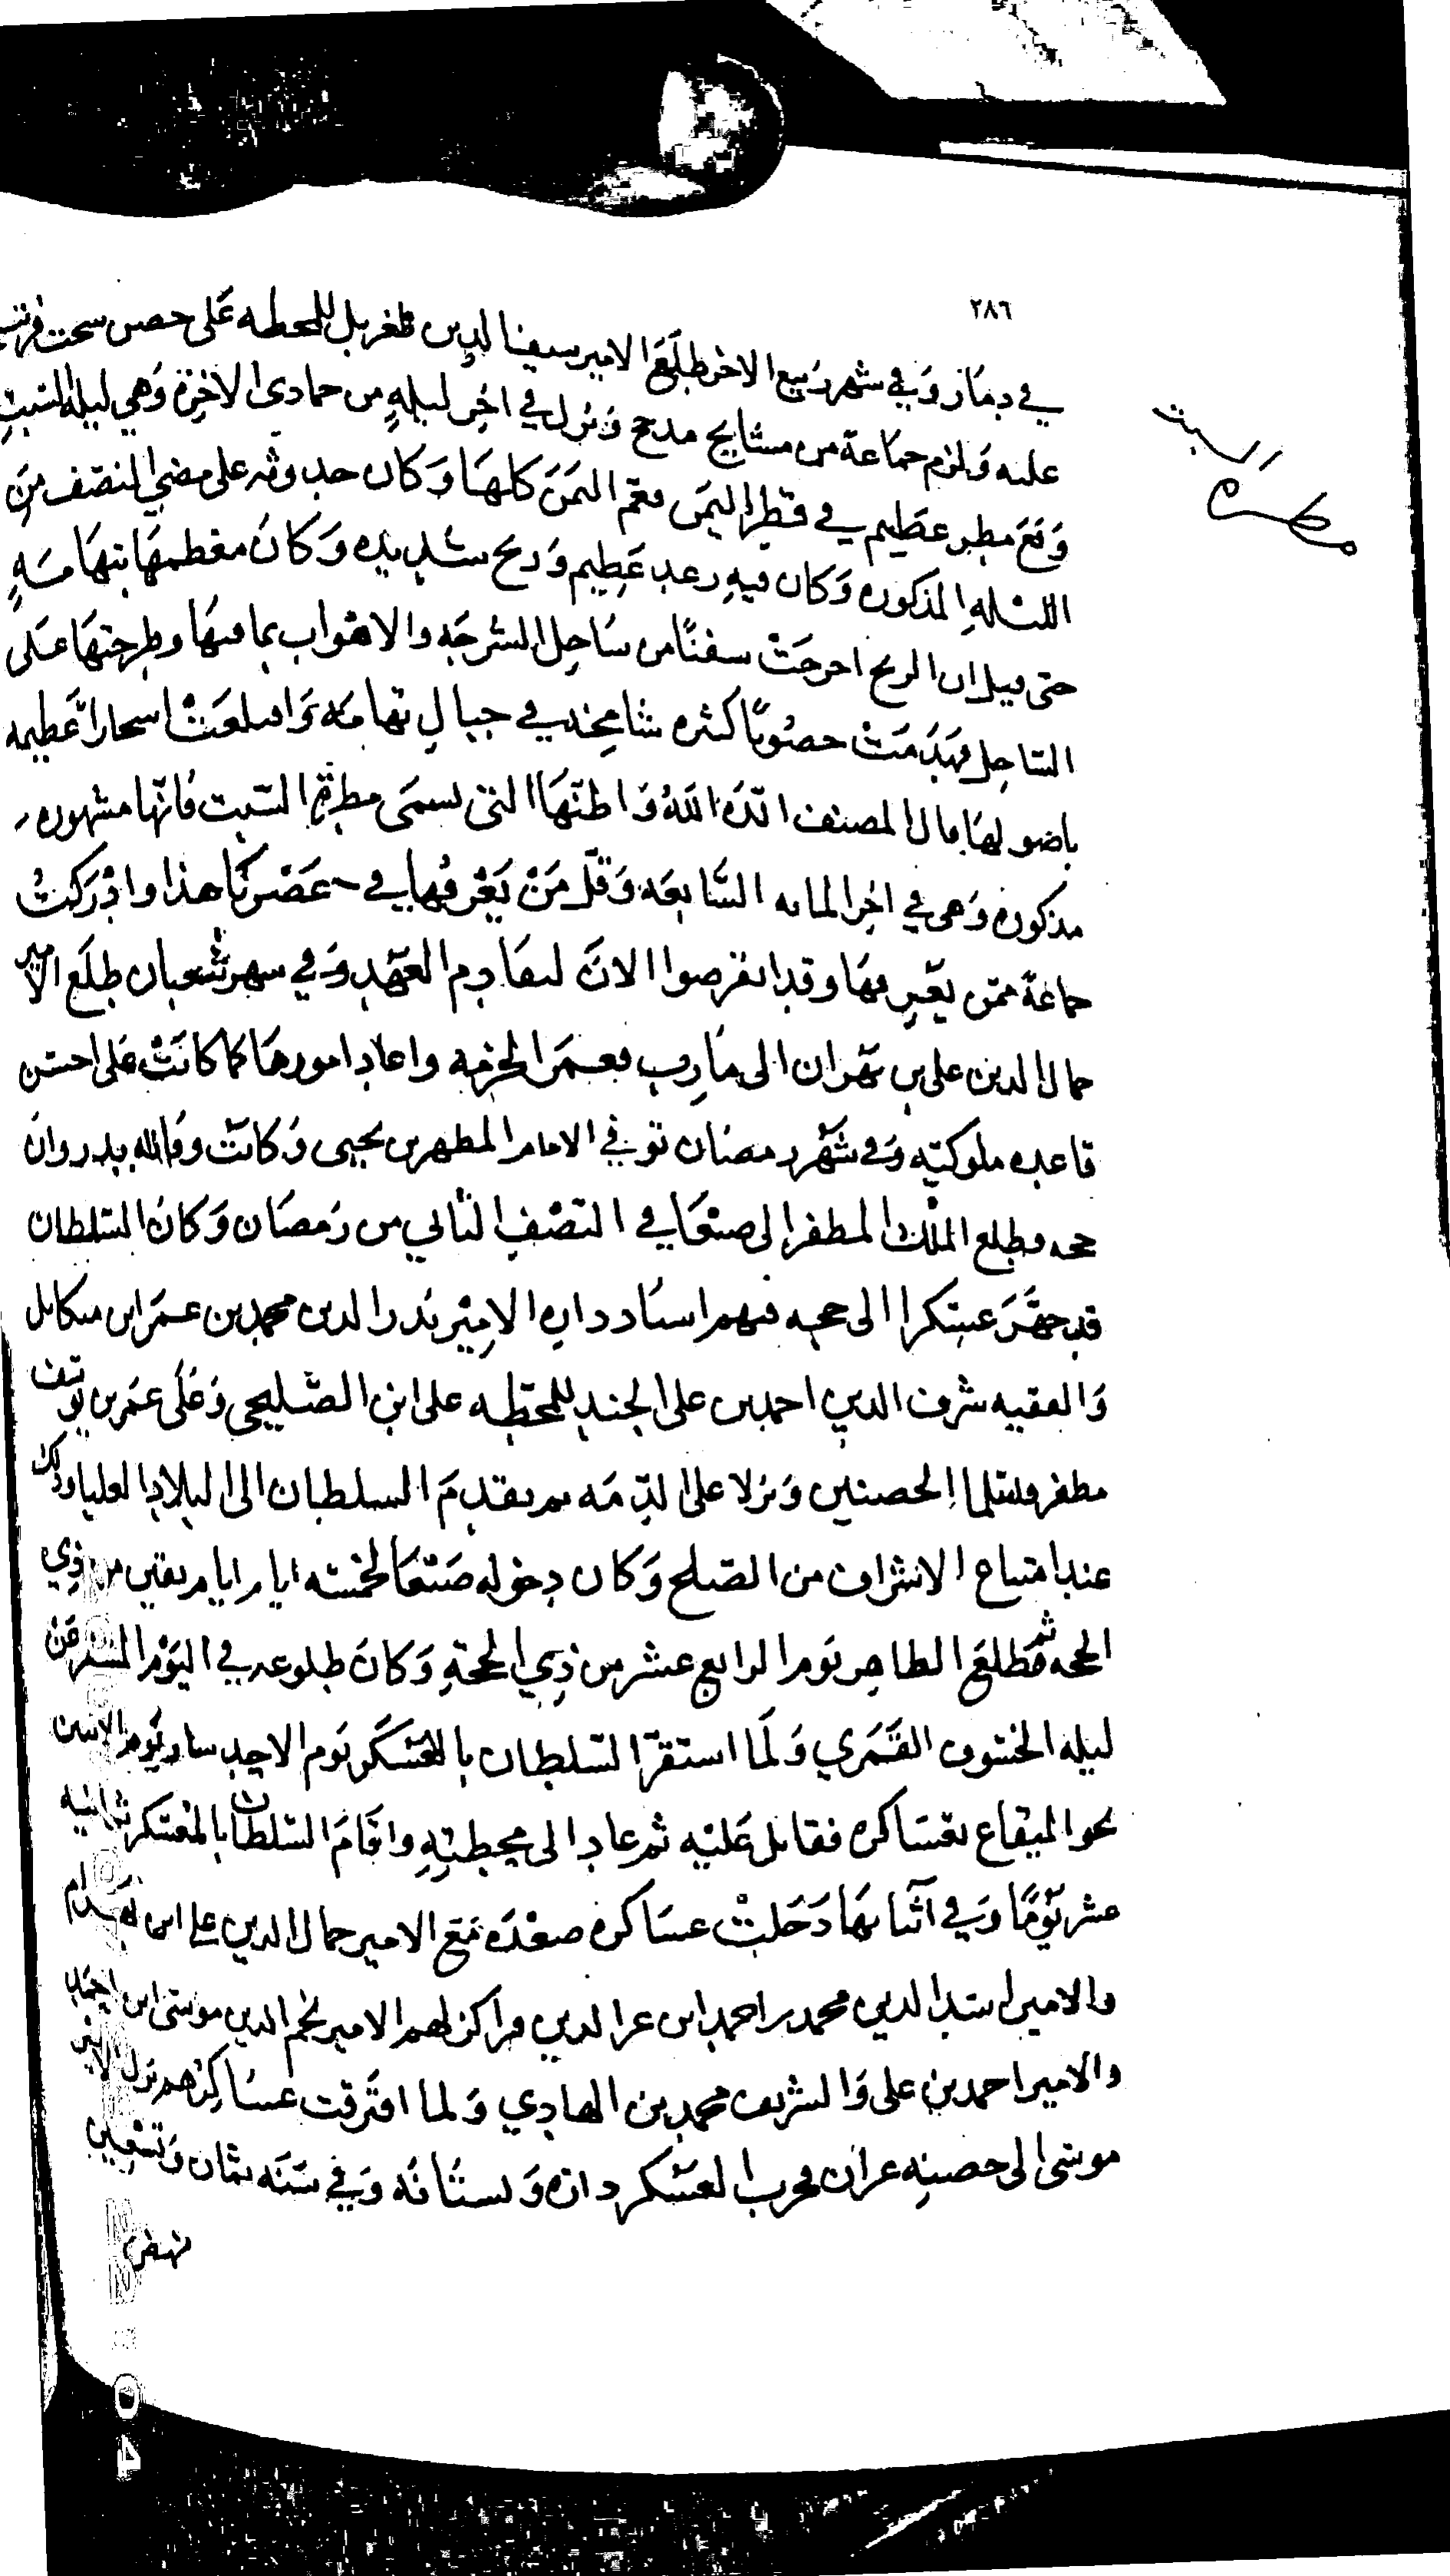 ٢٨٦
في ذمار وفي شهر ربيع الاخر طلع الامير سيف الدين طغريل للمحطه على حصن
عليه ولزم جماعة من مشايخ مذحج ونزل في اخر ليلةٍ من جمادى الاخرة وهي ليلة السبت
مطرة السبت
وقع مطر عظيم في قطر اليمن فعم اليمن كلها وكان حدوثه على مضي النصف من
الليله المذكوره وكان فيه رعد عظيم وريح شديده وكان معظمها بتهامه
حتى قيل ان الريح اخرجت سفنًا من ساحل الشرجه والاهواب بما فيها وطرحتها على
الساحل وهدمت حصونًا كثيره شامخه في جبال تهامه واقتلعت اشجارا عظيمه
باصولها قال المصنف ايده الله واظنها التي تسمى مطرة السبت فانها مشهوره
مذكوره وهي في اخر المايه السابعه وقل من يعرفها في عصرنا هذا وادركت
جماعة ممن يعرفها وقد انقرضوا الان لتقادم العهد وفي شهر شعبان طلع الامير
جمال الدين علي بن بهران الى مارب فعمر الخربه واعاد امورها كما كانت على احسن
قاعده ملوكيه وفي شهر رمضان توفي الامام المطهر بن يحيى وكانت وفاته بدروان
حجه وطلع الملك المظفر الى صنعا في النصف الثاني من رمضان وكان السلطان
قد جهز عسكرا الى حجه فيهم استاد داره الامير بدر الدين محمد بن عمر ابن ميكايل
والفقيه شرف الدين احمد بن علي الجنيد للمحطه على ابن الصليحي وعلى عمر بن يوسف
مظفر فسلما الحصنين ونزلا على الذمه ثم تقدم السلطان الى البلاد العليا وذلك
عند امتناع الاشراف من الصلح وكان دخوله صنعا لخمسه ايام ايام بقين من ذي
الحجه ثم طلع الظاهر يوم الرابع عشر من ذي الحجة وكان طلوعه في اليوم المسفر عن
ليله الخسوف القمري ولما استقر السلطان بالعسكر يوم الاحد سار يوم الاثنين
نحو الميقاع بعساكره فقاتل عليه ثم عاد الى محطته واقام السلطان بالمعسكر ثمانيه
عشر يومًا وفي اثنايها دخلت عساكره صعده مع الامير جمال الدين علي ابن بهرام
والامير اسد الدين محمد بن احمد ابن عز الدين الامير نجم الدين موسى ابن احمد
والامير احمد بن علي والشريف محمد بن الهادي ولما افترقت عساكرهم نزل الامير
موسى الى حصنه عزان فخرب العسكر داره وبستانه وفي سنه ثمان وتسعين
نهض